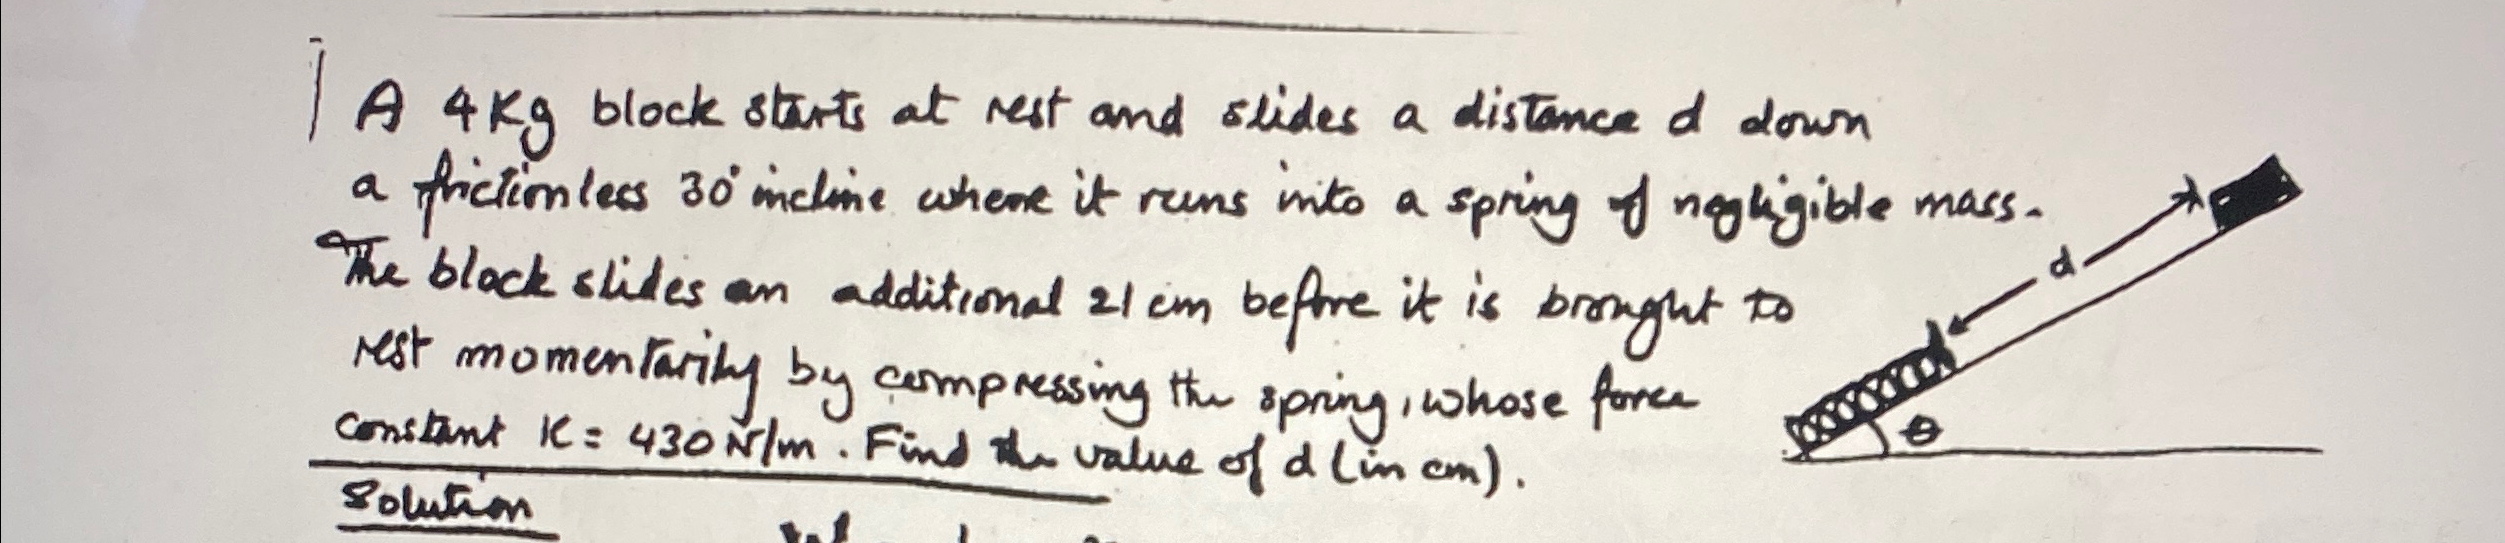 A 4Kg block starts at rest and slides a distance d down
a frictionless 30° incline where it runs into a spring of negligible mass.
The block slides an additional 21 cm before it is brought to
rest momentarily by compressing the spring, whose force
constant K = 430 N/m. Find the value of d (in cm).
d
θ
Solution